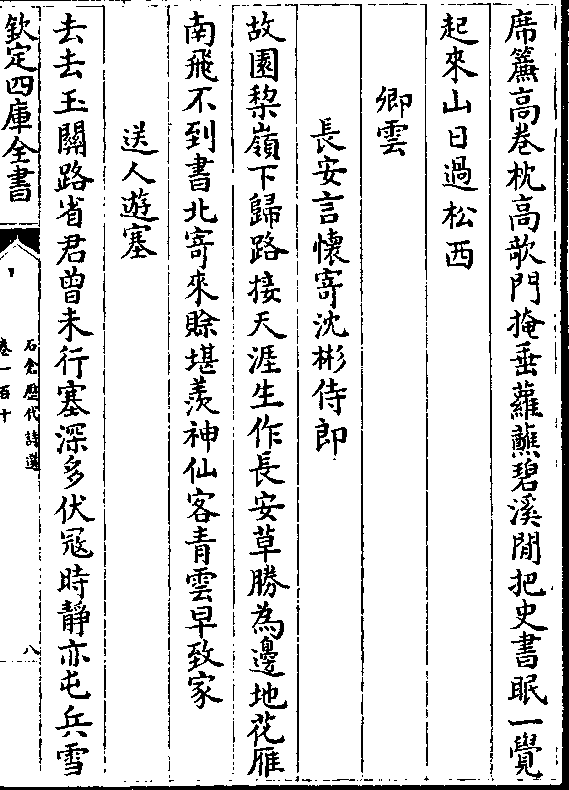 席簾高卷枕高欹門掩垂蘿蘸碧溪閒把史書眠一覺
起來山日過松西
卿雲
長安言懷寄沈彬侍郎
故園棃嶺下歸路接天涯生作長安草勝為邊地花雁
南飛不到書北寄來賒堪羨神仙客青雲早致家
送人遊塞
去去玉關路省君曽未行塞深多伏冦時靜亦屯兵雪
欽定四庫全書
石倉歷代詩選
卷一百十
八